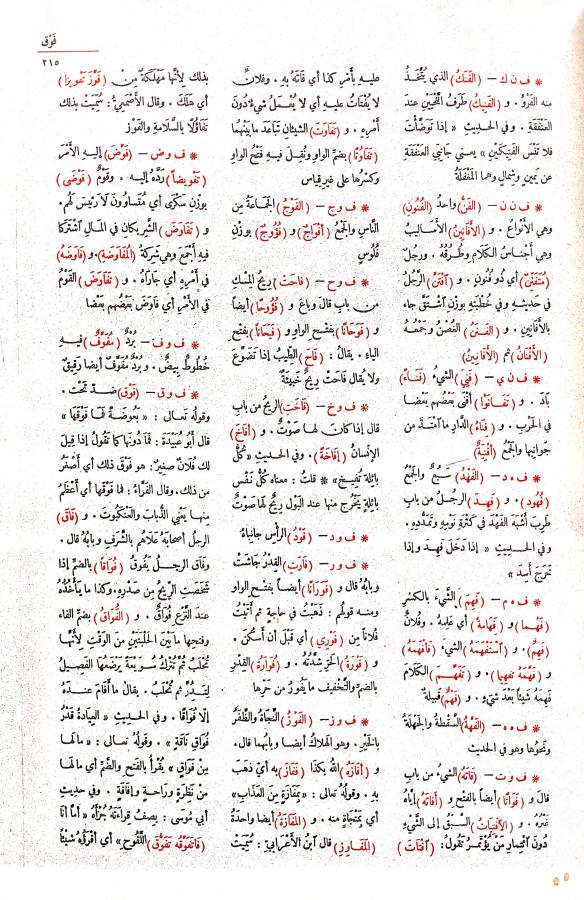 فَوْق
٢١٥
* ف ن ك – (الفَنَكُ) الذي يُتَّخَذُ
منه الفَرْوُ . و (الفَنِيكُ) طَرَفُ اللَّحْيَيْنِ عند
العَنْفَقَةِ . وفي الحديثِ « إذا توضَّأتَ
فلا تَنْسَ الفَنِيكَيْنِ » يعني جانِبَيِ العَنْفَقَةِ
عن يَمينٍ وشِمالٍ وهما المَغْفَلَةُ
* ف ن ن – (الفَنُّ) واحدُ (الفُنُونِ)
وهي الأنْواعُ . و (الأفَانِينُ) الأسَالِيبُ
وهي أجْناسُ الكَلامِ وطُرُقُه . ورجُلٌ
(مُتَفَنِّنٌ) أي ذو فُنُونٍ . و (آفْتَنَّ) الرَّجُلُ
في حديثِه وفي خُطْبَتِه بوزن آشْتَقَّ جاء
بالأفَانِينِ . و (الفَنَنُ) الغُصْنُ وجَمْعُه
(الأفْنَانُ) ثم (الأفَانِينُ)
* ف ن ي – (فَنِيَ) الشيءُ (فَنَاءً)
بَادَ . و (تَفَانَوْا) أفْنَى بَعْضُهم بعضا
في الحَرْبِ . و (فِنَاءُ) الدَّارِ ما آمْتَدَّ من
جَوانِبِها والجَمْعُ (أفْنِيَةٌ)
* ف ه د – (الفَهْدُ) سَبُعٌ والجَمْعُ
(فُهُودٌ) و (فَهِدَ) الرجُلُ من باب
طَرِبَ أشْبَهَ الفَهْدَ في كَثْرةِ نَوْمِه وتَمَدُّدِه.
وفي الحديثِ « إذا دَخَلَ فَهِدَ وإذا
خَرَجَ أَسِدَ »
* ف ه م – (فَهِمَ) الشيءَ بالكَسْرِ
(فَهْما) و (فَهَامةً) أي عَلِمَه . وفُلانٌ
(فَهِمٌ) . و (آسْتَفْهَمَهُ) الشيءَ (فأفْهَمَهُ)
و (فَهَّمَهُ تفهيما) . و (تَفَهَّمَ) الكَلامَ
فَهِمَهُ شيئا بَعْدَ شيءٍ . و (فَهْمٌ) قبيلةٌ
* ف ه ه – (الفَهَّةُ) السَّقْطَةُ والجَهْلةُ
ونحوُها وهو في الحديث
* ف و ت – (فَاتَهُ) الشيءُ من باب
قال و (فَوَاتًا) أيضا بالفتح و (أفَاتَهُ) إيَّاهُ
غيْرُه . و (الآفْتِيَاتُ) السَّبْقُ إلى الشَّيءِ
دُونَ آئتمارِ مَنْ يُؤْتَمَرُ تقولُ: (آفْتَاتَ)
عليه بأمْرِ كذا أي فَاتَهُ به . وفُلانٌ
لا يُفْتَاتُ عليه أي لا يُعْمَلُ شيءٌ دونَ
أمْرِه . و (تَفَاوَتَ) الشيئانِ تباعَدَ ما بَيْنَهُما
(تَفَاوُتًا) بضم الواو ونُقِلَ فيه فَتْحُ الواوِ
وكَسْرُها على غيرِ قياس
* ف و ج – (الفَوْجُ) الجَماعةُ من
النَّاسِ والجَمْعُ (أفْوَاجٌ) و (فُؤُوجٌ) بوزْنِ
فُلُوسٍ
* ف و ح – (فاحَتْ) ريحُ المِسْكِ
من باب قال وباعَ و (فُؤُوحًا) أيضا
و (فَوَحَانًا) بفتح الواو و (فَيَحَانًا) بفتح
الياءِ . يقالُ : (فَاحَ) الطِّيبُ إذا تَضَوَّعَ
ولا يقال فاحَتْ ريحٌ خَبيثةٌ
* ف و خ – (فاخَتِ) الريحُ من بابِ
قال إذا كان لها صَوْتٌ . و (أفَاخَ)
الإنسانُ (إفَاخَةً) . وفي الحديثِ « كُلُّ
بائلةٍ تُفيخُ » * قلتُ : معناه كلُّ نَفْسٍ
بائلةٍ يَخْرُجُ منها عند البَوْلِ ريحٌ لها صَوْتٌ
* ف و د – (فَوْدُ) الرأسِ جانباهُ
* ف و ر – (فارَتِ) القِدْرُ جاشَتْ
وبابُه قال و (فَوَرَانًا) أيضا بفتح الواو
ومنه قولُهم : ذَهَبْتُ في حاجةٍ ثم أتَيْتُ
فُلانًا مِنْ (فَوْرِي) أي قَبْلَ أن أسْكُنَ .
و (فَوْرَةُ) الحَرِّ شِدَّتُه . و (فُوَارَةُ) القِدْرِ
بالضمِّ والتَّخْفيفِ ما يَفُورُ من حَرِّها
* ف و ز – (الفَوْزُ) النَّجاةُ والظَّفَرُ
بالخَيْرِ . وهو الهلاكُ أيضا وبابُهما قال .
و (أفَازَهُ) اللهُ بكذا (فَفَازَ) به أي ذهَبَ
به . وقولُه تعالى : «بمَفَازَةٍ من العذابِ»
أي بمَنْجَاةٍ منه . و (المَفَازَةُ) أيضا واحدةُ
(المَفَاوِزِ) قال آبنُ الأعْرابيّ : سُمِّيَتْ
بذلك لأنَّها مَهْلَكَةٌ مِنْ (فَوَّزَ تَفْوِيزا)
أي هَلَكَ . وقال الأصْمَعِيُّ : سُمِّيَتْ بذلك
تَفَاؤُلًا بالسَّلامةِ والفَوْز
* ف و ض – (فَوَّضَ) إليه الأمْرَ
(تَفْوِيضاً) رَدَّهُ إليه . وقَوْمٌ (فَوْضَى)
بوزْنِ سَكْرَى أي مُتَسَاوُونَ لا رَئِيسَ لهم .
و (تَفَاوَضَ) الشَّريكان في المَالِ آشْتَرَكا
فيه أجْمَعَ وهي شَرِكةُ (المُفَاوَضَةِ) و(فَاوَضَهُ)
في أمْرِهِ أي جَارَاهُ . و (تَفَاوَضَ) القَوْمُ
في الأَمْرِ أي فَاوَضَ بَعْضُهم بعضا
* ف و ف – بُرْدٌ (مُفَوَّفٌ) فيه
خُطُوطٌ بِيضٌ . وبُرْدٌ مُفَوَّفٌ أيضا رَقِيقٌ
* ف و ق – (فَوْقُ) ضدّ تَحْتَ .
وقولُه تعالى : « بَعُوضَةً فَمَا فَوْقَهَا »
قال أبو عُبَيدَةَ : فما دُونَها كما تَقُولُ إذا قِيلَ
لك فُلانٌ صغيرٌ : هو فَوْقَ ذلك أي أصْغَرُ
من ذلك. وقال الفَرَّاءُ : فما فَوْقَها أي أعْظَمُ
منها يعني الذُّبابَ والعَنْكَبُوتَ . و (فَاقَ)
الرجلُ أصحابَهُ عَلَاهم بالشَّرَفِ وبابُه قال .
وفَاقَ الرجلُ يَفُوقُ (فُوَاقاً) بالضم إذا
شَخَصَتِ الرِّيحُ من صَدْرِه. وكذا ما يَأخُذُهُ
عند النَّزْعِ فُوَاقٌ . و (الفُوَاقُ) بضم الفاء
وفتحها ما بَيْنَ الحَلْبَتَيْنِ من الوَقْتِ لأنَّها
تُحْلَبُ ثُمَّ تُتْرَكُ سُوَيْعَةً يَرْضَعُها الفَصِيلُ
لِتَدُرَّ ثم تُحْلَبُ . يقالُ ما أقامَ عندَهُ
إلّا فُوَاقًا . وفي الحديثِ « العِيَادَةُ قَدْرُ
فُوَاقِ نَاقَةٍ » . وقولُهُ تعالى : « مَالَهَا
مِنْ فَوَاقٍ » يُقْرَأُ بالفتح والضَّمِّ أي مَالَها
مِنْ نَظْرَةٍ ورَاحةٍ وإفَاقَةٍ . وفي حديثِ
أبي مُوسَى : يصِفُ قِرَاءتَه جُزْأَهُ « أما أنَا
(فَأتَفَوَّقُهُ تَفَوُّقَ) اللَّقُوحِ » أي أقْرَؤُهُ شَيْئًا